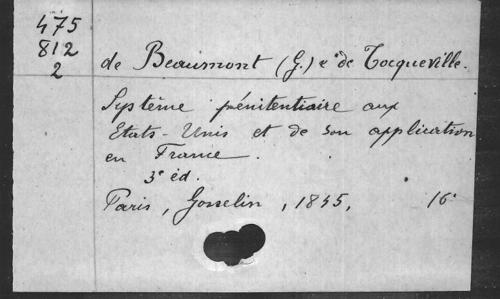 475
812
2
de Beaumont (G.) e de Tocqueville.
Système pénitentiaire aux
Etats-Unis et de son application
en France.
3e éd.
Paris, Gosselin, 1845, 16°